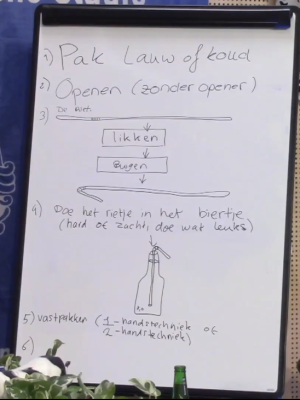 1) Pak Lauw of koud
2) Openen (zonder opener)
3) De riet.
likken
Buigen
4) Doe het rietje in het biertje
(hard of zacht, doe wat leuks)
5) vastpakken (1-handstechniek of
2-handstechniek)
6)